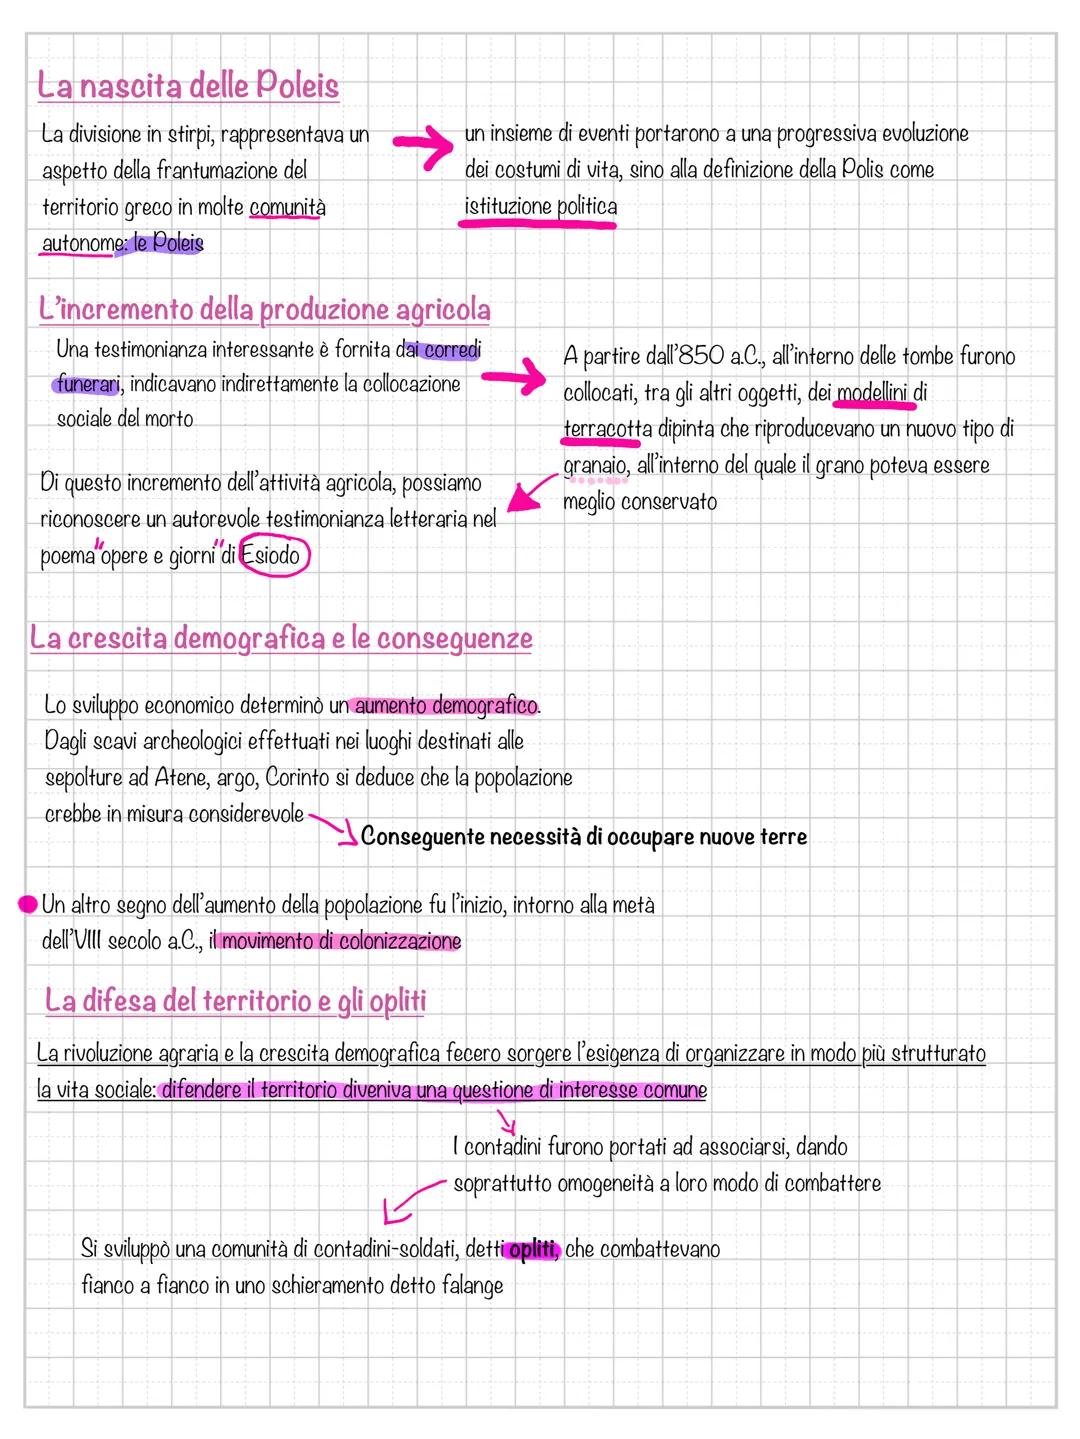 La nascita delle Poleis
La divisione in stirpi, rappresentava un
aspetto della frantumazione del
territorio greco in molte comunità
autonome: le Poleis
un insieme di eventi portarono a una progressiva evoluzione
dei costumi di vita, sino alla definizione della Polis come
istituzione politica
L'incremento della produzione agricola
Una testimonianza interessante è fornita dai corredi
funerari, indicavano indirettamente la collocazione
sociale del morto
A partire dall'850 a.C., all'interno delle tombe furono
collocati, tra gli altri oggetti, dei modellini di
terracotta dipinta che riproducevano un nuovo tipo di
granaio, all'interno del quale il grano poteva essere
meglio conservato
Di questo incremento dell'attività agricola, possiamo
riconoscere un autorevole testimonianza letteraria nel
poema "opere e giorni" di Esiodo
La crescita demografica e le conseguenze
Lo sviluppo economico determinò un aumento demografico.
Dagli scavi archeologici effettuati nei luoghi destinati alle
sepolture ad Atene, argo, Corinto si deduce che la popolazione
crebbe in misura considerevole
Conseguente necessità di occupare nuove terre
Un altro segno dell'aumento della popolazione fu l'inizio, intorno alla metà
dell'VIII secolo a.C., il movimento di colonizzazione
La difesa del territorio e gli opliti
La rivoluzione agraria e la crescita demografica fecero sorgere l'esigenza di organizzare in modo più strutturato
la vita sociale: difendere il territorio diveniva una questione di interesse comune
I contadini furono portati ad associarsi, dando
soprattutto omogeneità a loro modo di combattere
Si sviluppò una comunità di contadini-soldati, detti opliti, che combattevano
fianco a fianco in uno schieramento detto falange